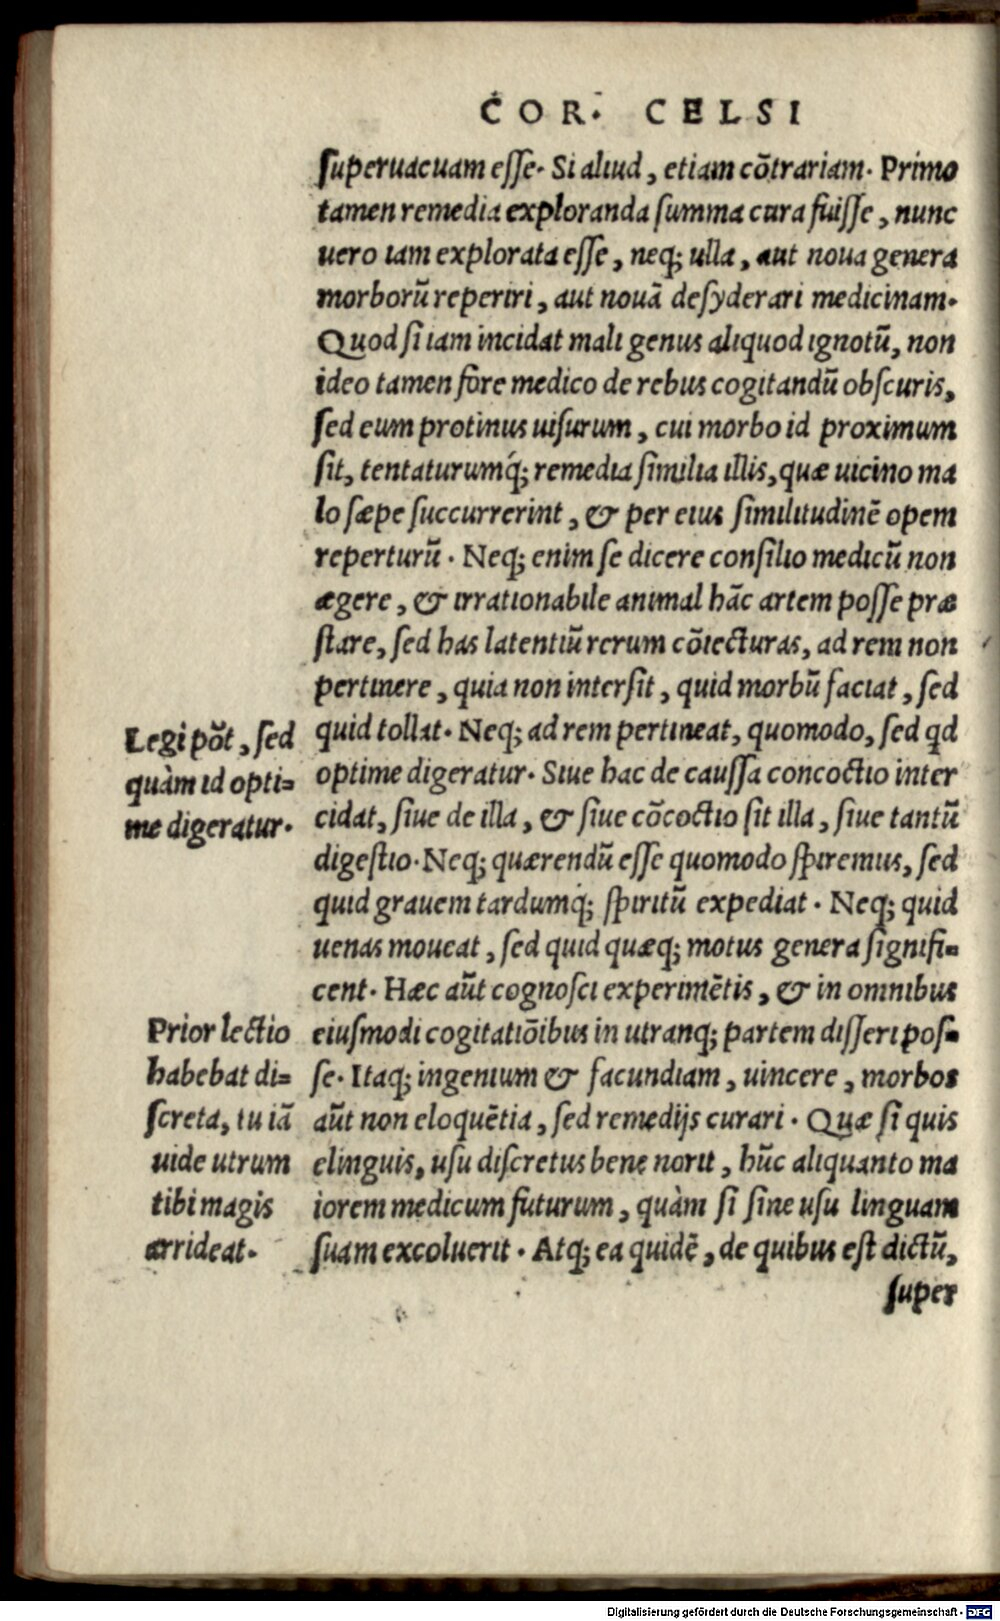 COR. CELSI
superuacuam esse. Si aliud, etiam cōtrariam. Primo
tamen remedia exploranda summa cura fuisse, nunc
uero iam explorata esse, neq; ulla, aut noua genera
morborū reperiri, aut nouā desyderari medicinam.
Quod si iam incidat mali genus aliquod ignotū, non
ideo tamen fore medico de rebus cogitandū obscuris,
sed eum protinus uisurum, cui morbo id proximum
sit, tentaturumq́; remedia similia illis, quæ uicino ma
lo sæpe succurrerint, & per eius similitudinē opem
reperturū. Neq; enim se dicere consilio medicū non
ægere, & irrationabile animal hāc artem posse præ
stare, sed has latentiū rerum cōiecturas, ad rem non
pertinere, quia non intersit, quid morbū faciat, sed
quid tollat. Neq; ad rem pertineat, quomodo, sed qd
optime digeratur. Siue hac de caussa concoctio inter
cidat, siue de illa, & siue cōcoctio sit illa, siue tantū
digestio. Neq; quærendū esse quomodo spiremus, sed
quid grauem tardumq́; spiritū expediat. Neq; quid
uenas moueat, sed quid quæq; motus genera signifi=
cent. Hæc aūt cognosci experimētis, & in omnibus
eiusmodi cogitatiōibus in utranq; partem disseri pos=
se. Itaq; ingenium & facundiam, uincere, morbos
aūt non eloquētia, sed remedijs curari. Quæ si quis
elinguis, usu discretus bene norit, hūc aliquanto ma
iorem medicum futurum, quàm si sine usu linguam
suam excoluerit. Atq; ea quidē, de quibus est dictū,
super
Legi pōt, sed
quàm id opti=
me digeratur.
Prior lectio
habebat di=
screta, tu iā
uide utrum
tibi magis
arrideat.
Digitalisierung gefördert durch die Deutsche Forschungsgemeinschaft - DFG